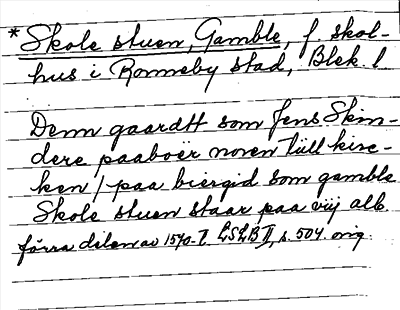 * Skole stuen, Gamble, f. skol-
hus i Ronneby stad, Blek. l
Denn gaardtt som Jens Skin-
dere paaboer noren till kirc-
ken / paa biergid som gamble
Skole stuen staar paa viij alb.
förra delen av 1570-t. LSLB II, s. 504. orig.